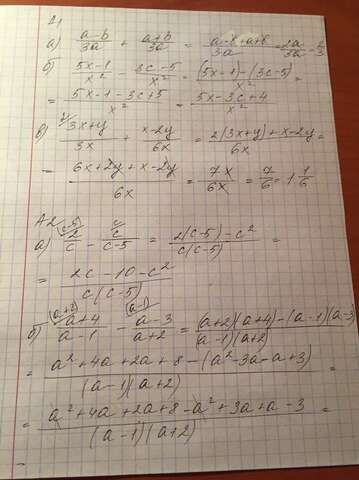 А1
а) (a-b)/3a + (a+b)/3a = (a-b+a+b)/3a = 2a/3a = 2/3
б) (5x-1)/x² - (3c-5)/x² = ((5x-1)-(3c-5))/x² =
= (5x-1-3c+5)/x² = (5x-3c+4)/x²
в) ²⁾(3x+y)/3x + (x-2y)/6x = (2(3x+y)+x-2y)/6x =
= (6x+2y+x-2y)/6x = 7x/6x = 7/6 = 1 1/6
А2
а) ⁽ᶜ⁻⁵⁾2/c - ᶜ⁾c/(c-5) = (2(c-5)-c²)/(c(c-5)) =
= (2c-10-c²)/(c(c-5))
б) ⁽ᵃ⁺²⁾(a+4)/(a-1) - ⁽ᵃ⁻¹⁾(a-3)/(a+2) = ((a+2)(a+4)-(a-1)(a-3))/((a-1)(a+2))
= (a²+4a+2a+8-(a²-3a-a+3))/((a-1)(a+2)) =
= (a²+4a+2a+8-a²+3a+a-3)/((a-1)(a+2)) =